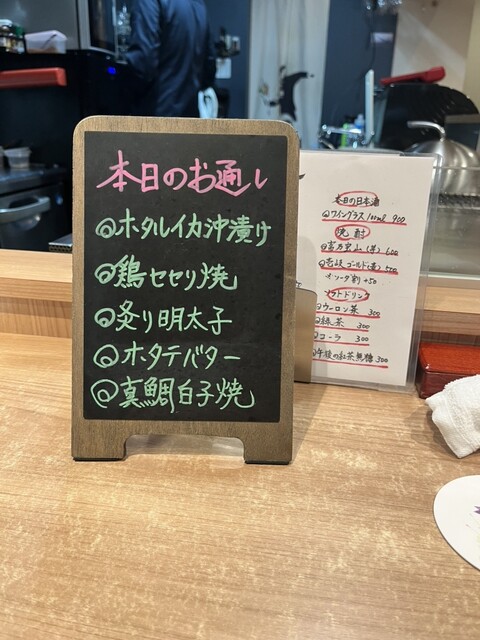 本日のお通し
◎ホタルイカ沖漬け
◎鶏セセリ焼
◎炙り明太子
◎ホタテバター
◎真鯛白子焼
本日の日本酒
◎ワイングラス100ml 900
焼酎
◎富乃宝山(芋) 600
◎壱岐ゴールド(麦) 500
ソーダ割+50
ソフトドリンク
◎ウーロン茶 300
◎緑茶 300
◎コーラ 300
◎午後の紅茶無糖 300